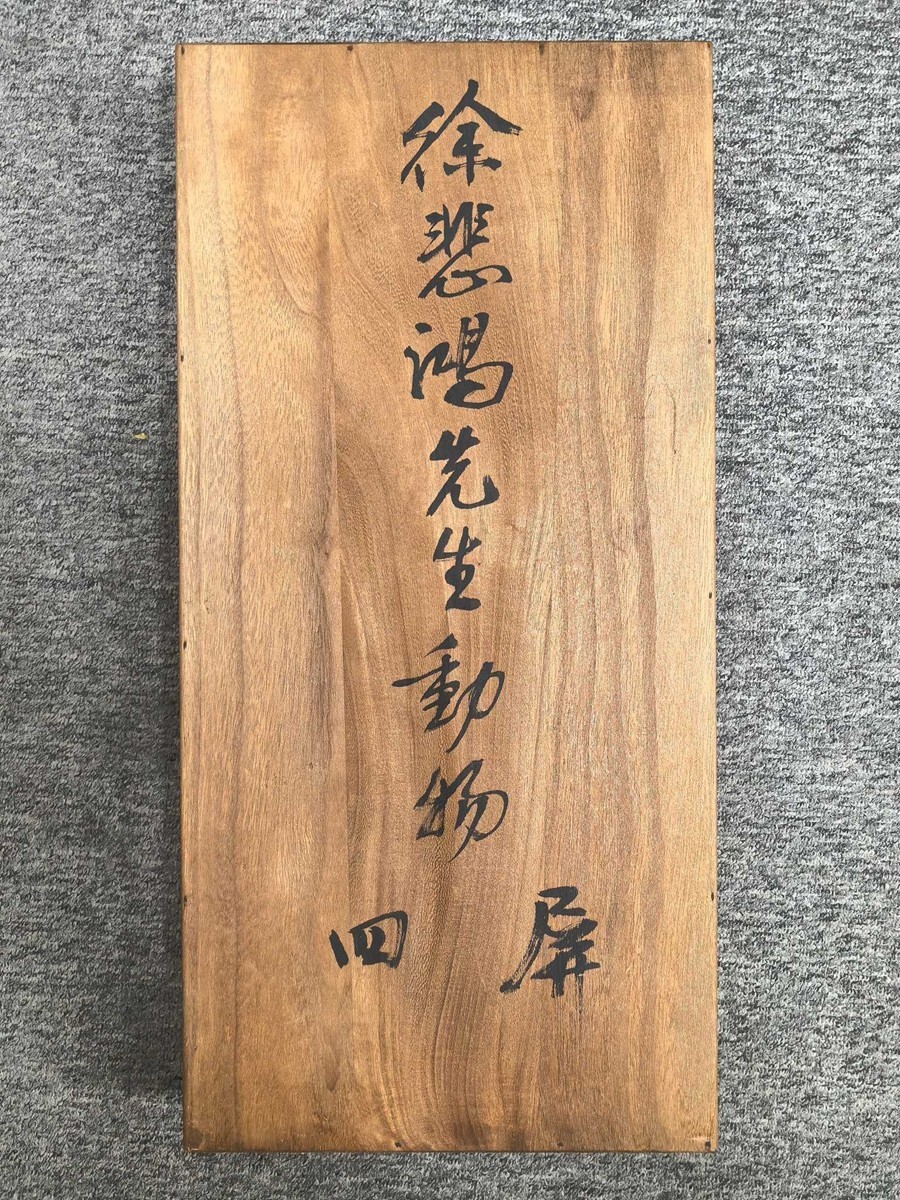 徐悲鴻先生動物
四屏